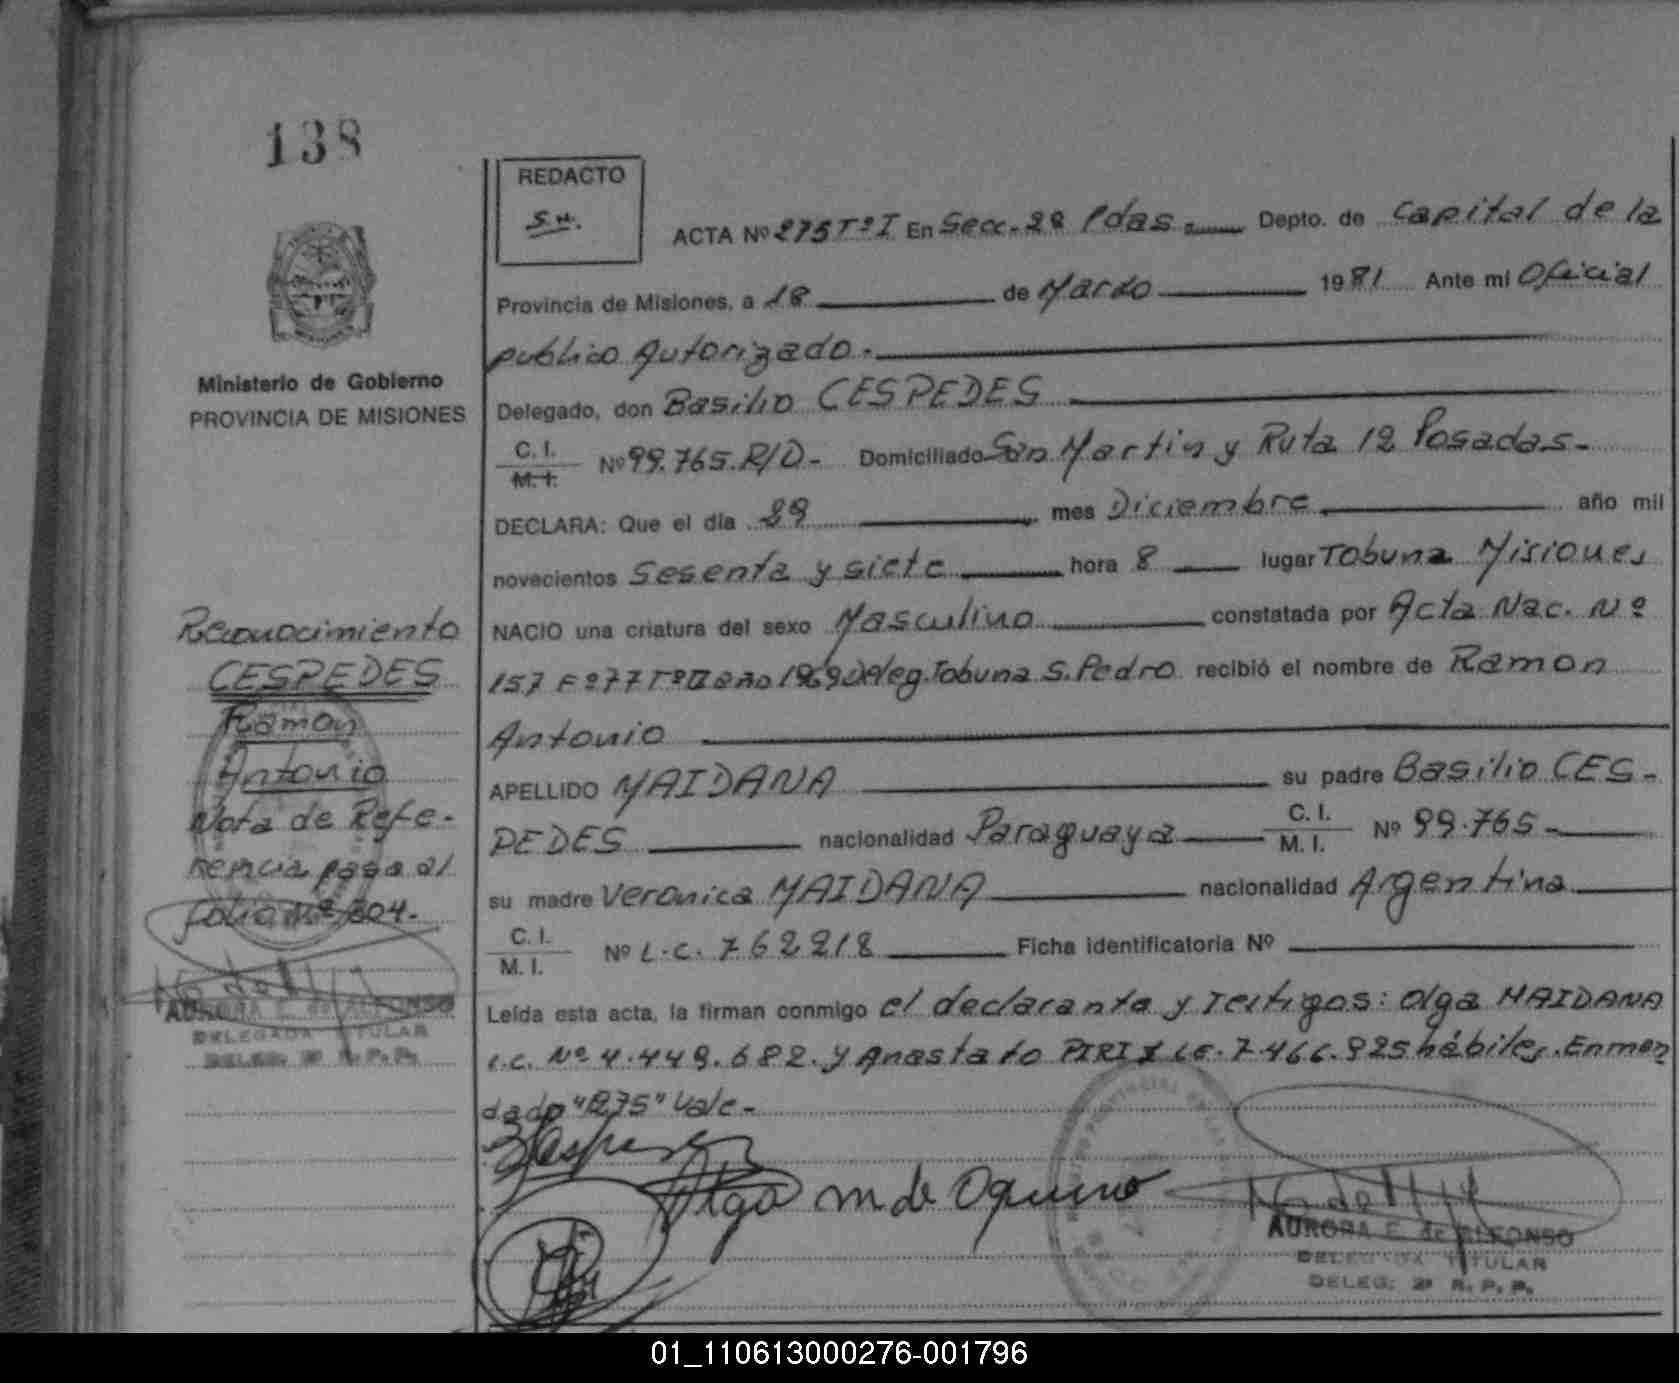 138
REDACTO
S.N.
ACTA Nº 275 Tº I En Secc. 2ª Pdas. Depto. de Capital de la
Provincia de Misiones, a 18 de Marzo 1981 Ante mi Oficial
publico Autorizado.-
Ministerio de Gobierno
PROVINCIA DE MISIONES
Delegado, don Basilio CESPEDES
C. I.
M. I. Nº 99.765.R/D- Domiciliado San Martin y Ruta 12 Posadas-
DECLARA: Que el día 29 mes Diciembre año mil
novecientos Sesenta y siete hora 8 lugar Tobuna Misiones
NACIO una criatura del sexo Masculino constatada por Acta Nac. Nº
157 Fº 77 Tº II año 1969 Deleg. Tobuna S. Pedro recibió el nombre de Ramon
Antonio
APELLIDO MAIDANA su padre Basilio CES-
PEDES nacionalidad Paraguaya C. I.
M. I. Nº 99.765-
su madre Veronica MAIDANA nacionalidad Argentina
C. I.
M. I. Nº L.C. 762218 Ficha identificatoria Nº
Leída esta acta, la firman conmigo el declarante y Testigos: Olga MAIDANA
L.C. Nº 4.449.682. y Anastacio PIRIZ LE. 7.466.925 hábiles. Enmen
dado "275" Vale-
Olga M de
AURORA E. de ALFONSO
DELEGADA TITULAR
DELEG: 2ª R. P. P.
Reconocimiento
CESPEDES
Ramon
Antonio
Nota de Refe-
rencia pasa al
folio Nº 304.
AURORA E. de ALFONSO
DELEGADA TITULAR
DELEG: 2ª R. P. P.
01_110613000276-001796